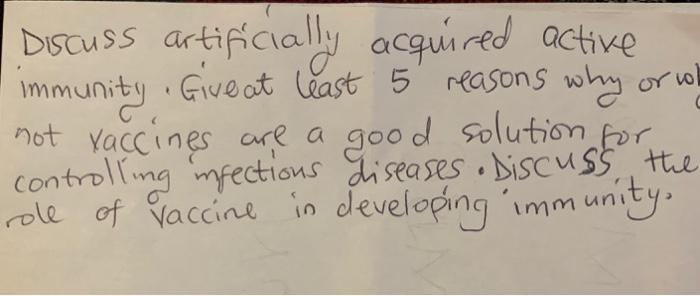 Discuss artificially acquired active
immunity. Give at least 5 reasons why or
not vaccines are a good solution for
controlling infectious diseases. Discuss the
role of vaccine in developing immunity.